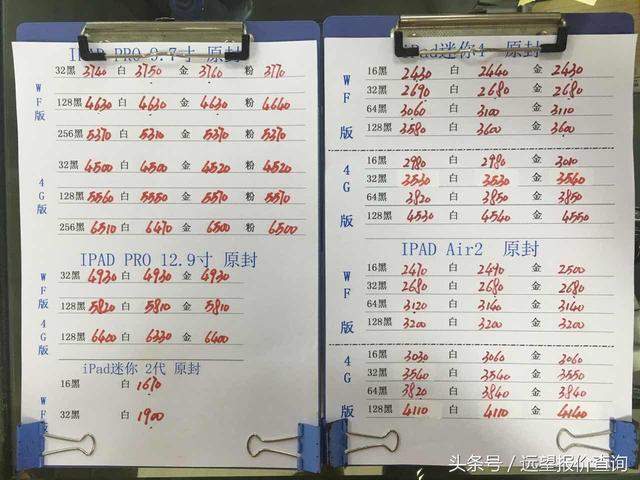 IPAD PRO 9.7寸 原封
WF版
32黑 3740 白 3750 金 3760 粉 3770
128黑 4630 白 4630 金 4630 粉 4640
256黑 5370 白 5310 金 5370 粉 5370
4G版
32黑 4500 白 4500 金 4520 粉 4520
128黑 5560 白 5550 金 5570 粉 5570
256黑 6510 白 6470 金 6500 粉 6500
IPAD PRO 12.9寸 原封
WF版
32黑 4930 白 4930 金 4930
128黑 5820 白 5810 金 5810
4G版
128黑 6400 白 6330 金 6400
iPad迷你 2代 原封
WF版
16黑 白 1670
32黑 白 1900
iPad迷你4 原封
WF版
16黑 2430 白 2440 金 2430
32黑 2690 白 2680 金 2680
64黑 3060 白 3100 金 3110
128黑 3580 白 3600 金 3600
4G版
16黑 2980 白 2980 金 3010
32黑 3530 白 3530 金 3540
64黑 3820 白 3850 金 3850
128黑 4530 白 4540 金 4550
IPAD Air2 原封
WF版
16黑 2470 白 2490 金 2500
32黑 2680 白 2680 金 2680
64黑 3120 白 3140 金 3140
128黑 3200 白 3200 金 3200
4G版
16黑 3030 白 3060 金 3060
32黑 3540 白 3540 金 3550
64黑 3820 白 3840 金 3840
128黑 4110 白 4110 金 4140
头条号 / 远望报价查询